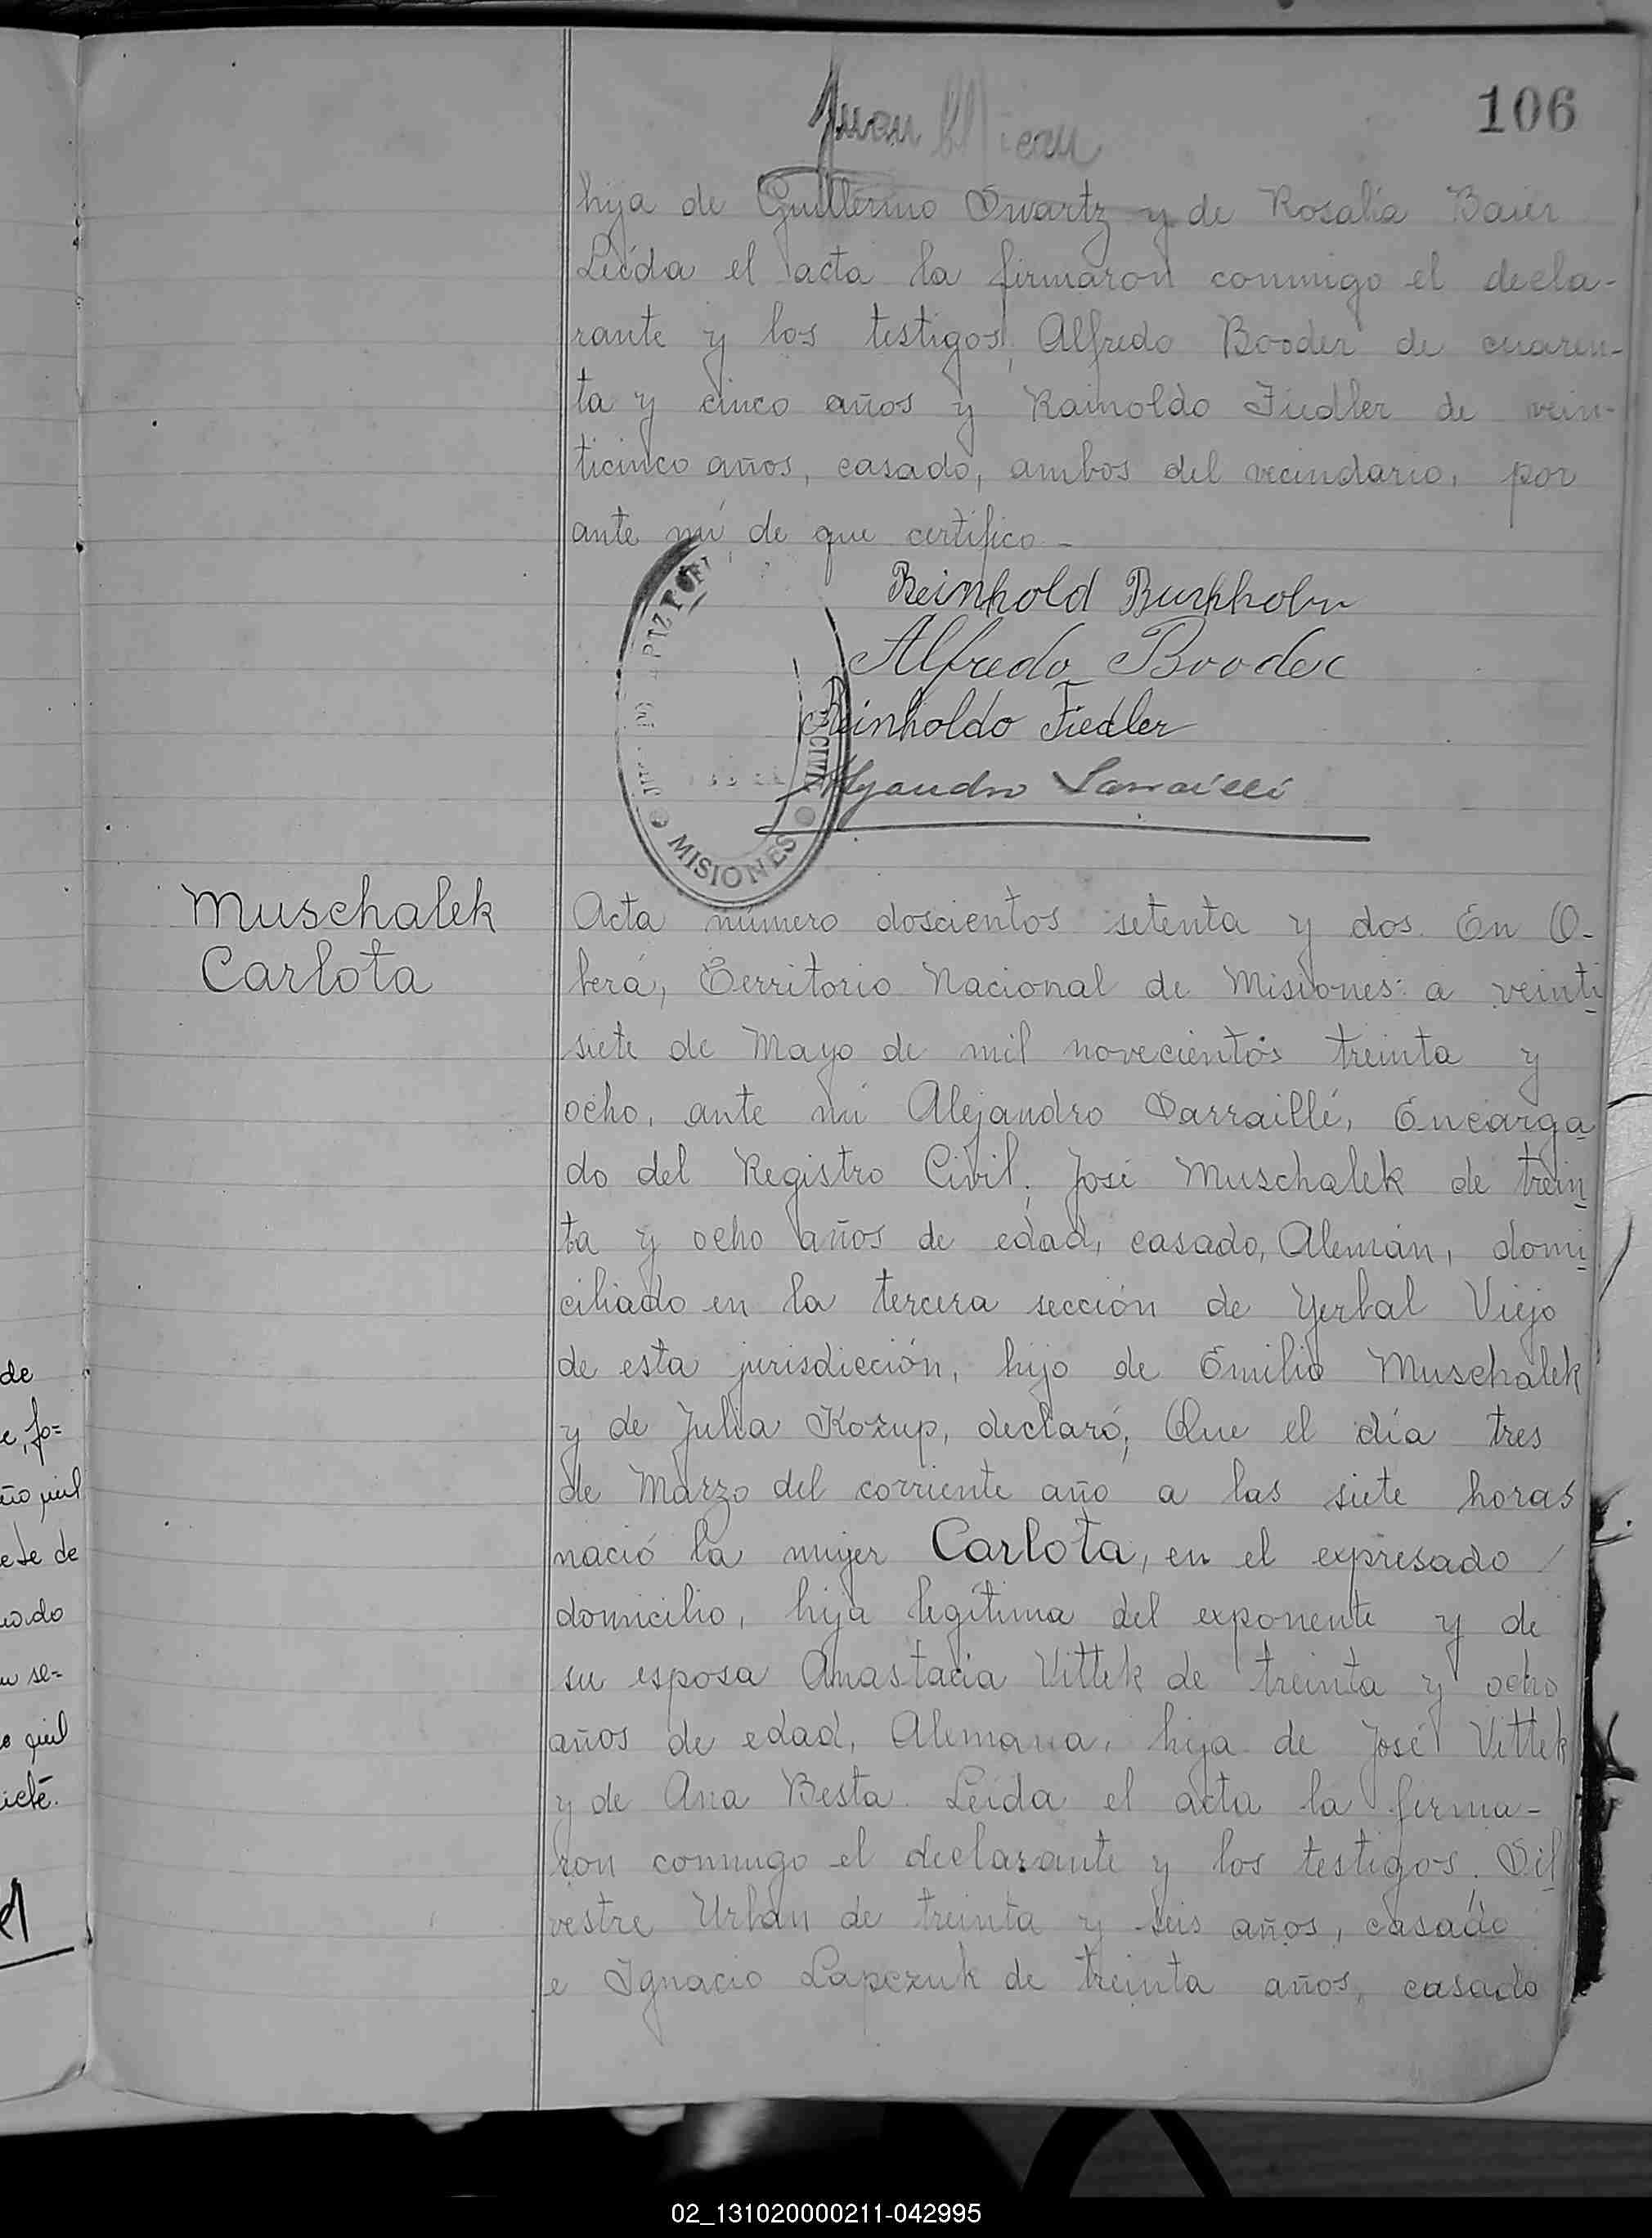 106
Juan
hija de Guillermo Swartz y de Rosalía Baier
Leída el acta la firmaron conmigo el decla-
rante y los testigos, Alfredo Booder de cuaren-
ta y cinco años y Rainoldo Fiedler de vein-
ticinco años, casado, ambos del vecindario, por
ante mí de que certifico -
Reinhold Burkholn
Alfredo Booder
Reinholdo Fiedler
Alejandro Sarraillé
MISIONES
Muschalek
Carlota
Acta número doscientos setenta y dos. En O-
berá, Territorio Nacional de Misiones: a veinti
siete de Mayo de mil novecientos treinta y
ocho, ante mí Alejandro Sarraillé, Encarga
do del Registro Civil; José Muschalek de trein
ta y ocho años de edad, casado, Alemán, domi
ciliado en la tercera sección de Yerbal Viejo
de esta jurisdicción, hijo de Emilio Muschalek
y de Julia Kozup, declaró; Que el día tres
de Marzo del corriente año a las siete horas
nació la mujer Carlota, en el expresado /
domicilio, hija legítima del exponente y de
su esposa Anastacia Vittek de treinta y ocho
años de edad, Alemana, hija de José Vittek
y de Ana Besta. Leída el acta la firma-
ron conmigo el declarante y los testigos. Sil
vestre Urban de treinta y seis años, casado
e Ignacio Lapczuk de treinta años, casado
de
e, fo=
ete de
se=
02_131020000211-042995